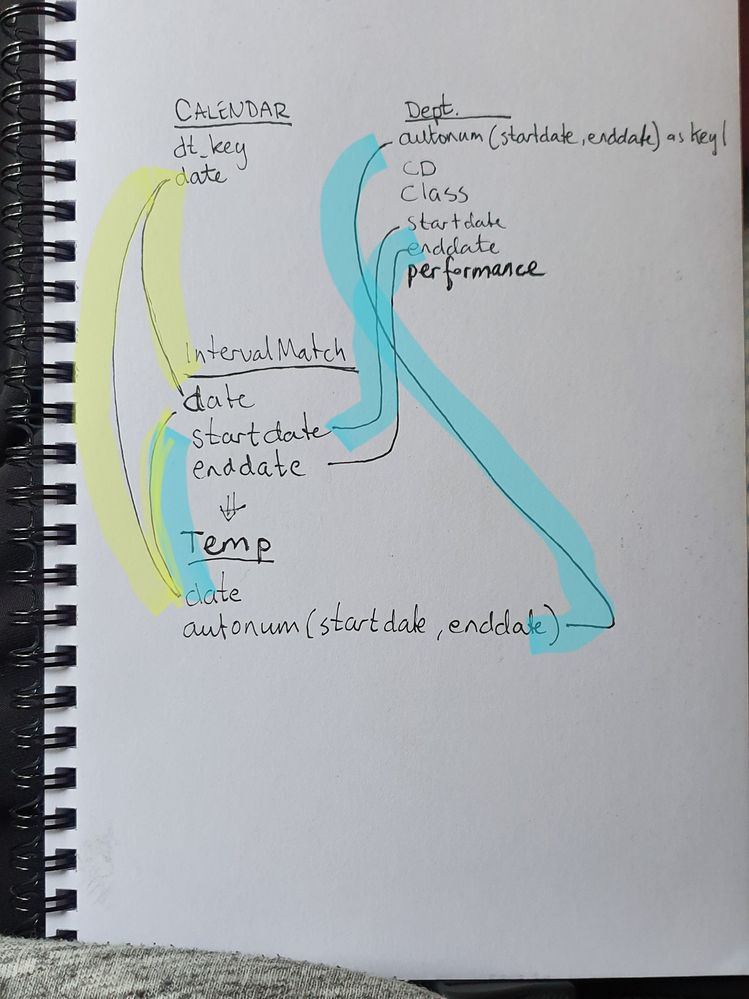 CALENDAR
dt_key
date
Dept.
autonum(startdate, enddate) as key1
CD
Class
startdate
enddate
performance
IntervalMatch
date
startdate
enddate
Temp
date
autonum(startdate, enddate)